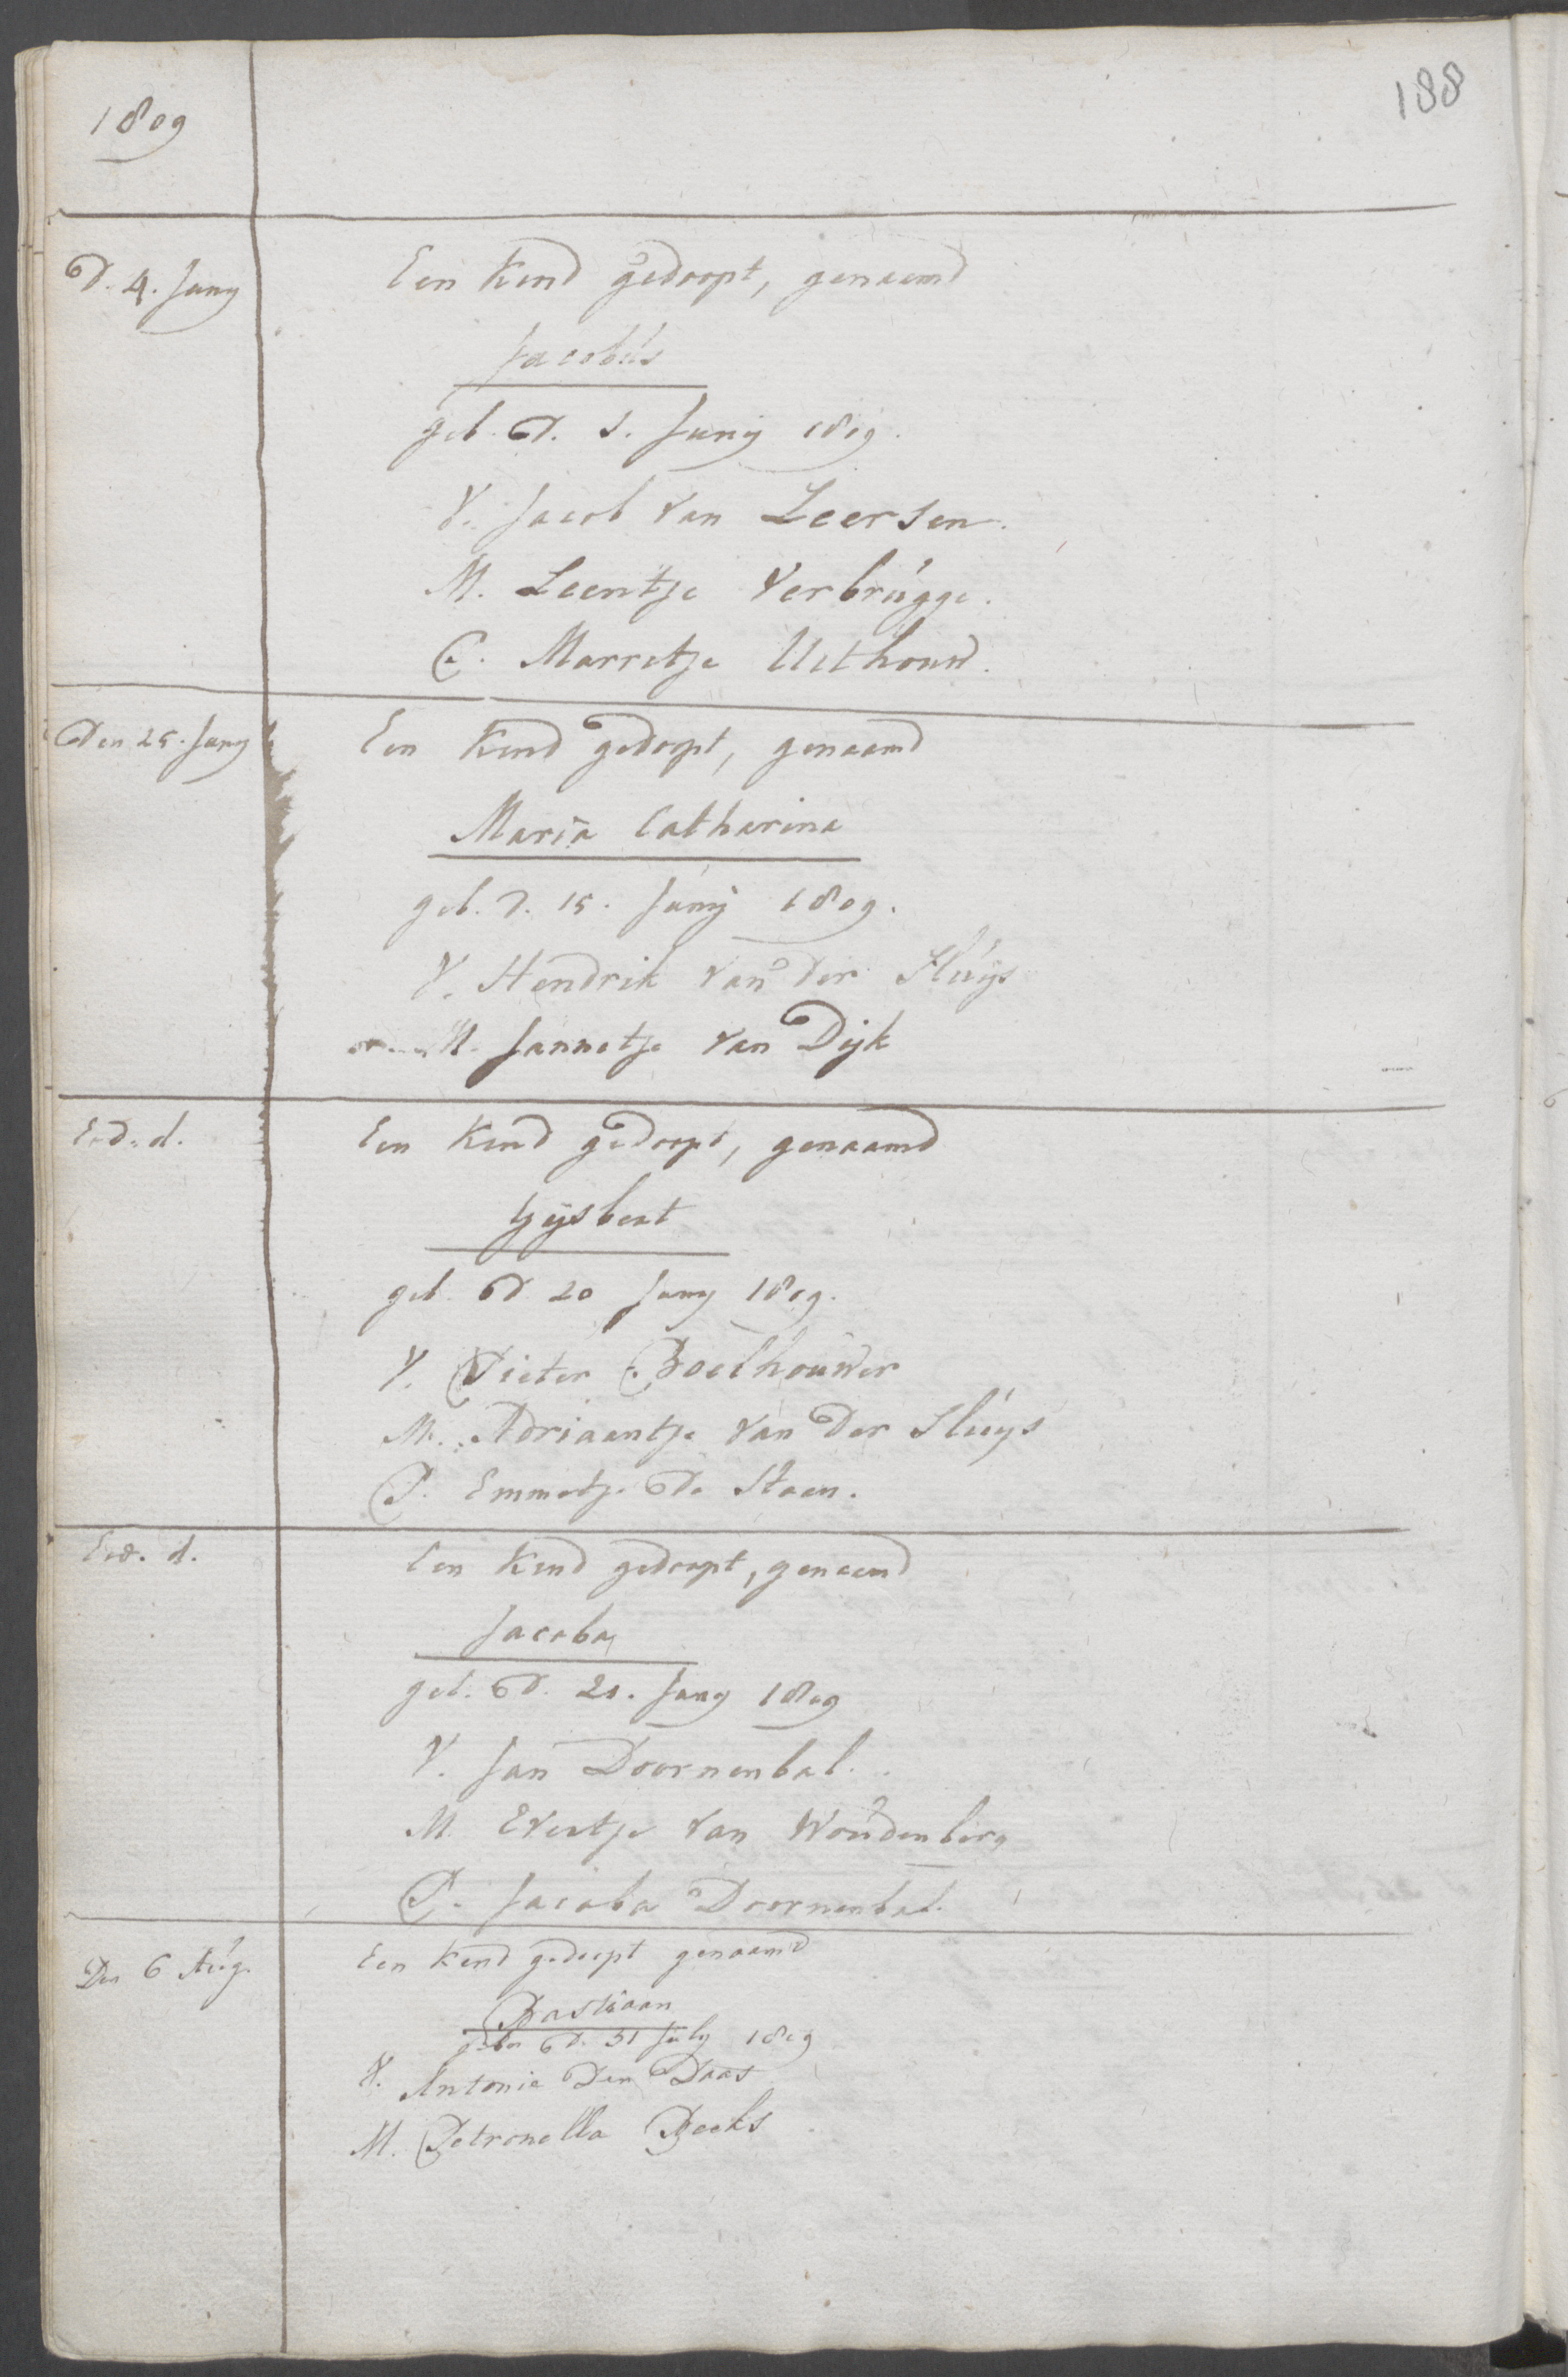 188
1809
D. 4. Juny
Een Kind gedoopt, genaamd
Jacobús
geb. D. 1. Juny 1809.
V. Jacob Van Leersen.
M. Leentje Verbrúgge.
C. Marretje Uithouw.
Den 25. Juny
Een Kind gedoopt, genaamd
Maria Catharina
geb. D. 15. Juny 1809.
V. Hendrik Van Der Slúys
M. Jannetje Van Dijk
Eod. d.
Een Kind gedoopt, genaamd
Gysbert
geb. D 20 Juny 1809.
V. Pieter Boelhouwer
M. Adriaantje Van Der Slúys
P. Emmetje De Haen.
Eod. d.
Een Kind gedoopt, genaamd
Jacoba
geb. D. 21. Juny 1809
V. Jan Doornenbal.
M. Evertje Van Woúdenberg
P. Jacoba Doornenbal.
Den 6 Aúg.
Een Kind gedoopt genaamd
Bastiaan
D. 31 July 1809
V. Antonie Den Daas
M. Petronella Beeks